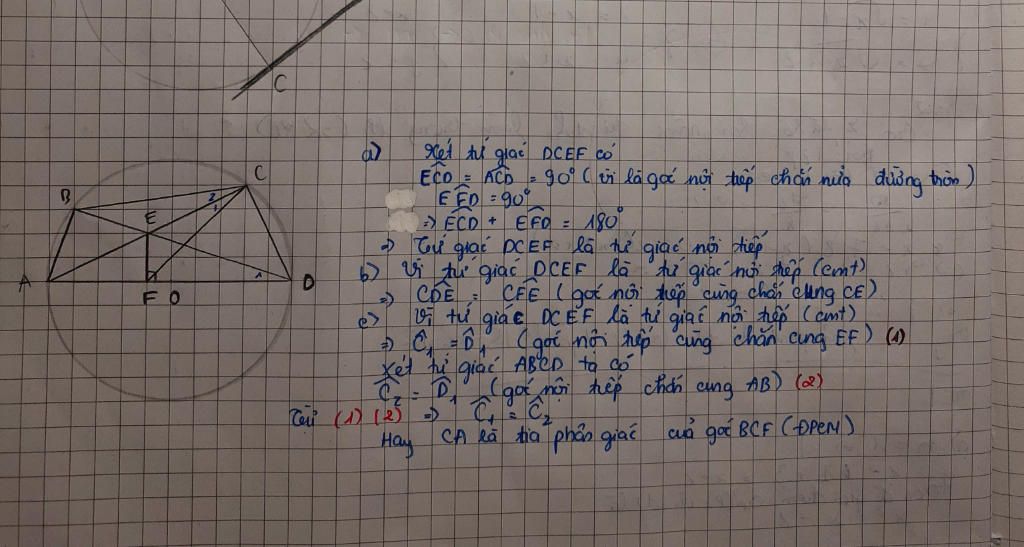 C
B
C
2
1
E
A
F
O
1
D
a) Xét tứ giác DCEF có
ECD = ACD = 90° (vì là góc nội tiếp chắn nửa đường tròn)
EFD = 90°
=> ECD + EFD = 180°
=> Tứ giác DCEF là tứ giác nội tiếp
b) Vì tứ giác DCEF là tứ giác nội tiếp (cmt)
=> CDE = CFE (góc nội tiếp cùng chắn cung CE)
c) Vì tứ giác DCEF là tứ giác nội tiếp (cmt)
=> Ĉ1 = D̂1 (góc nội tiếp cùng chắn cung EF) (1)
Xét tứ giác ABCD ta có
Ĉ2 = D̂1 (góc nội tiếp chắn cung AB) (2)
Từ (1) (2) => Ĉ1 = Ĉ2
Hay CA là tia phân giác của góc BCF (ĐPCM)